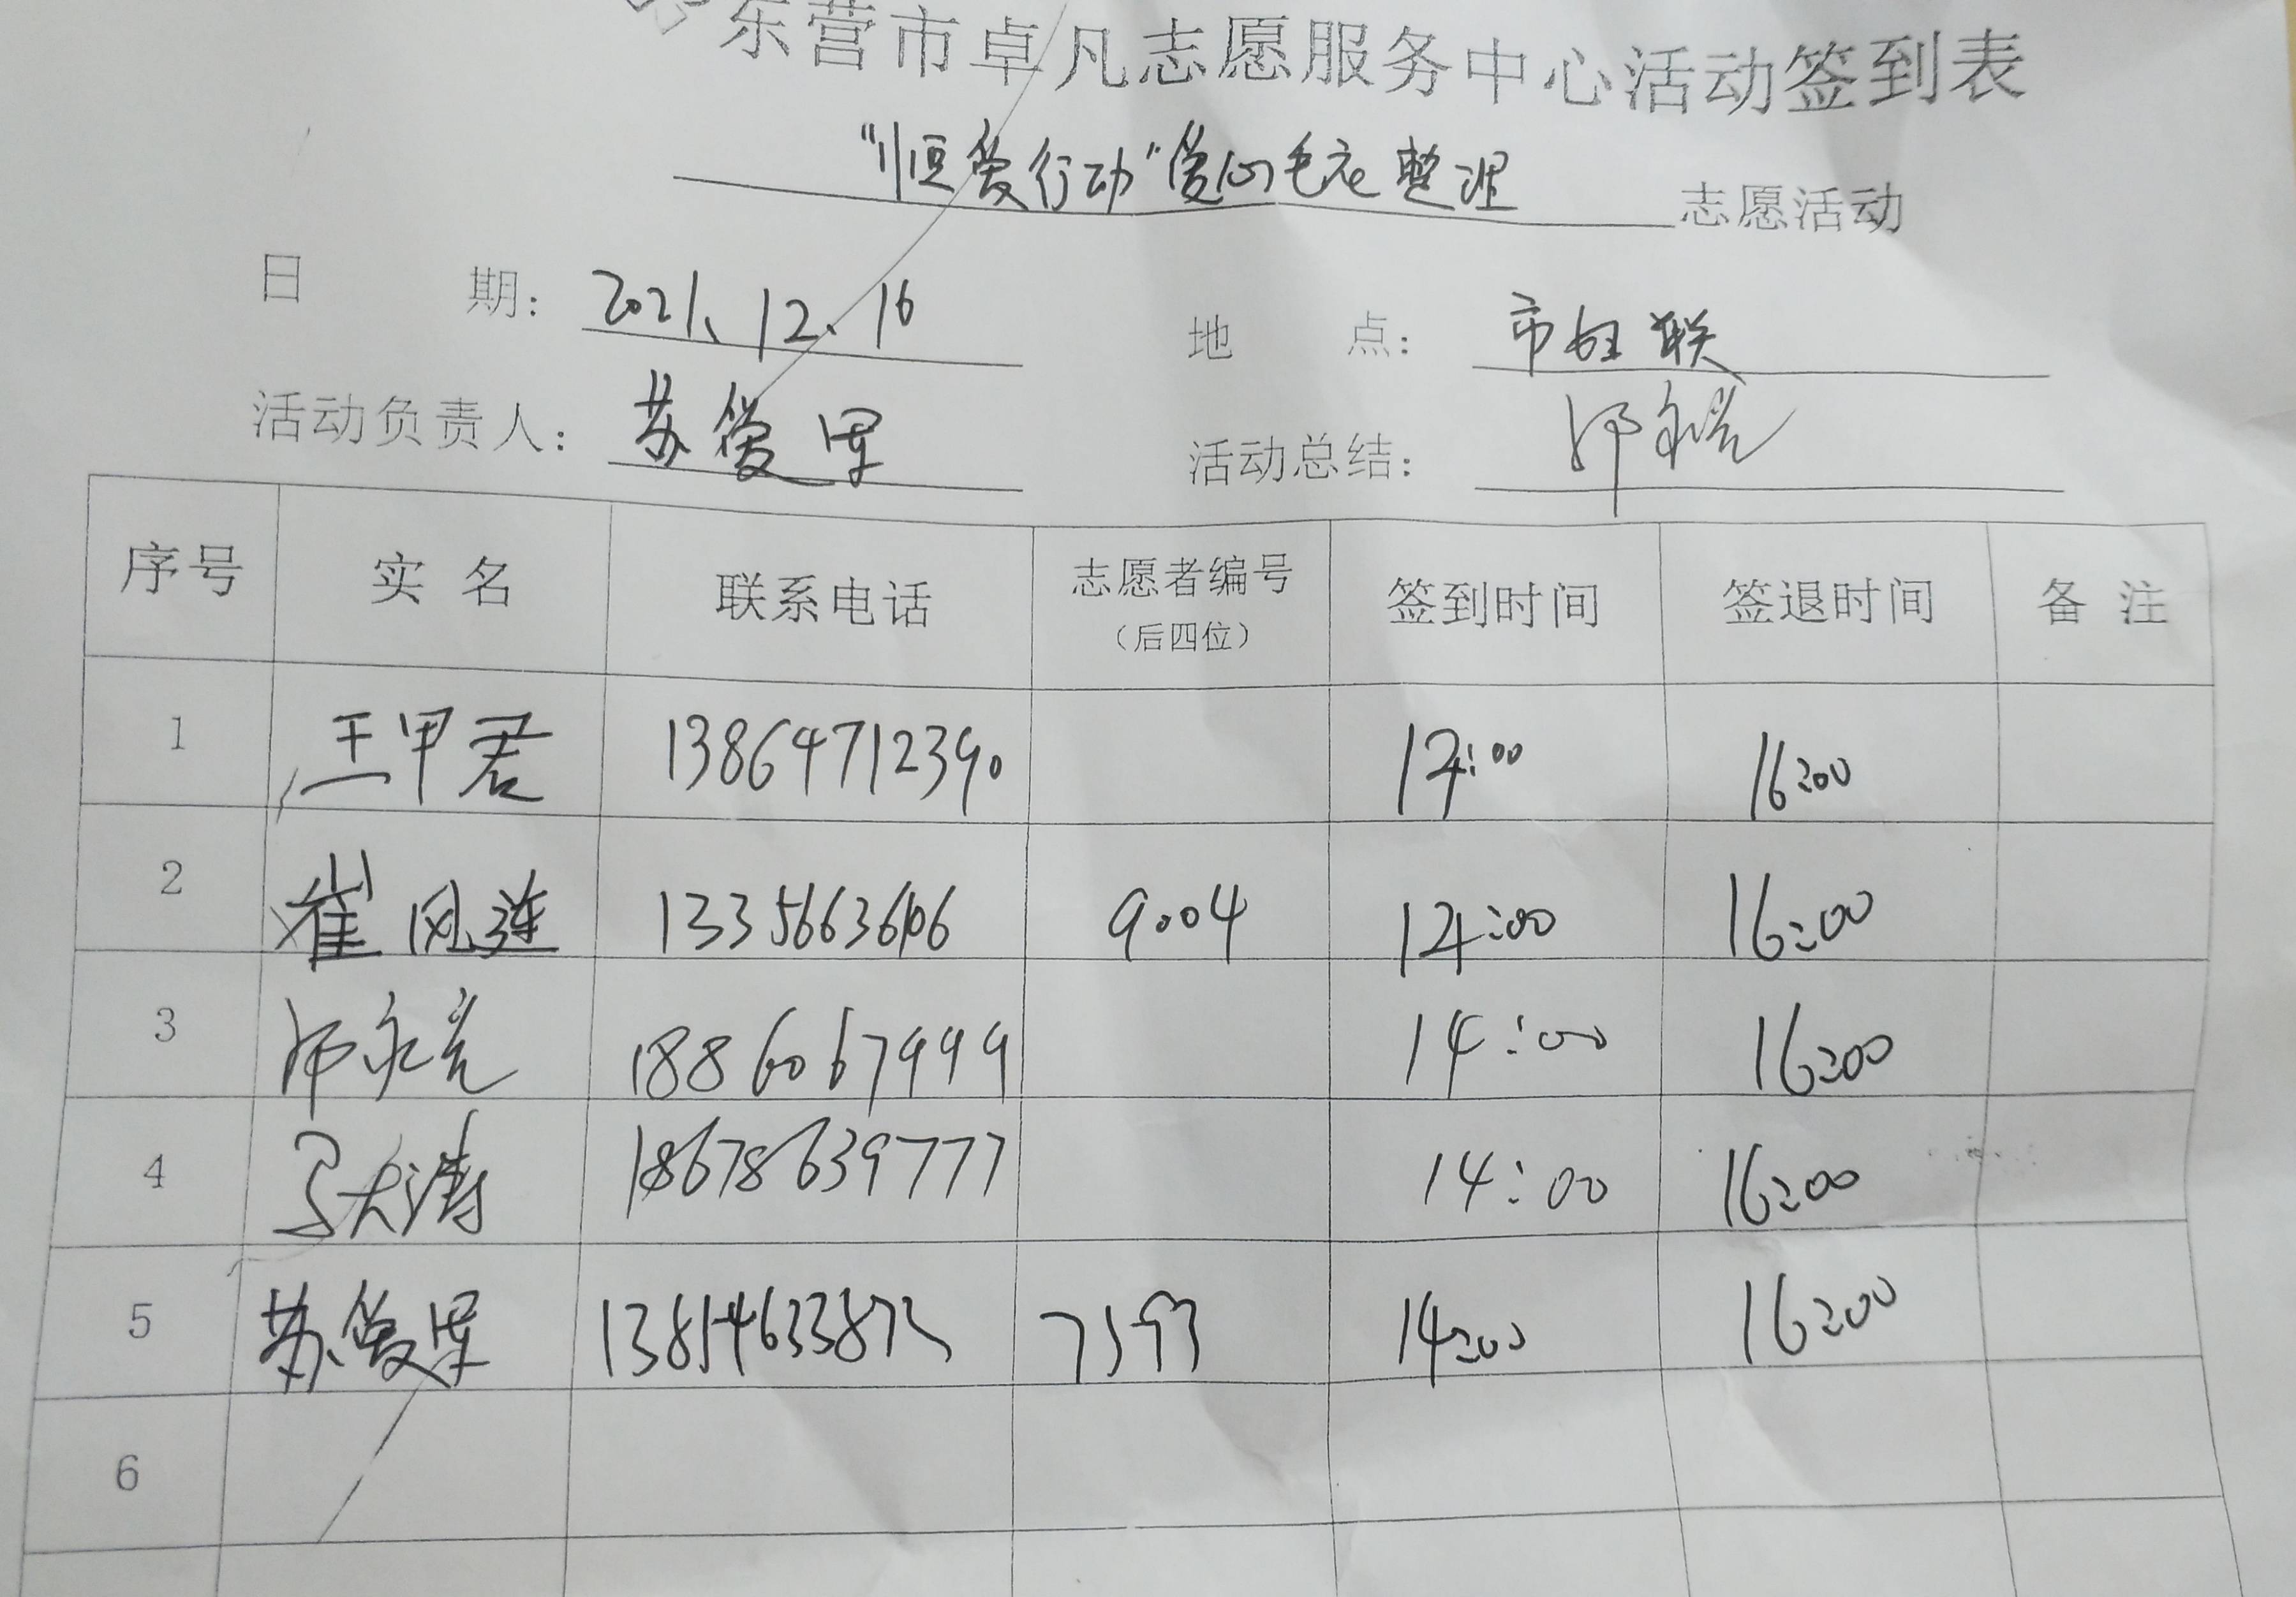 东营市卓凡志愿服务中心活动签到表
“恒爱行动”爱心毛衣整理 志愿活动
日 期: 2021.12.16 地 点: 市妇联
活动负责人: 苏爱军 活动总结: 邓永亮
序号 实名 联系电话 志愿者编号(后四位) 签到时间 签退时间 备注
1 王甲君 13864712390 14:00 16:00
2 崔凤莲 13356636106 9004 14:00 16:00
3 邓永亮 1886067999 14:00 16:00
4 18678639777 14:00 16:00
5 苏爱军 7593 14:00 16:00
6